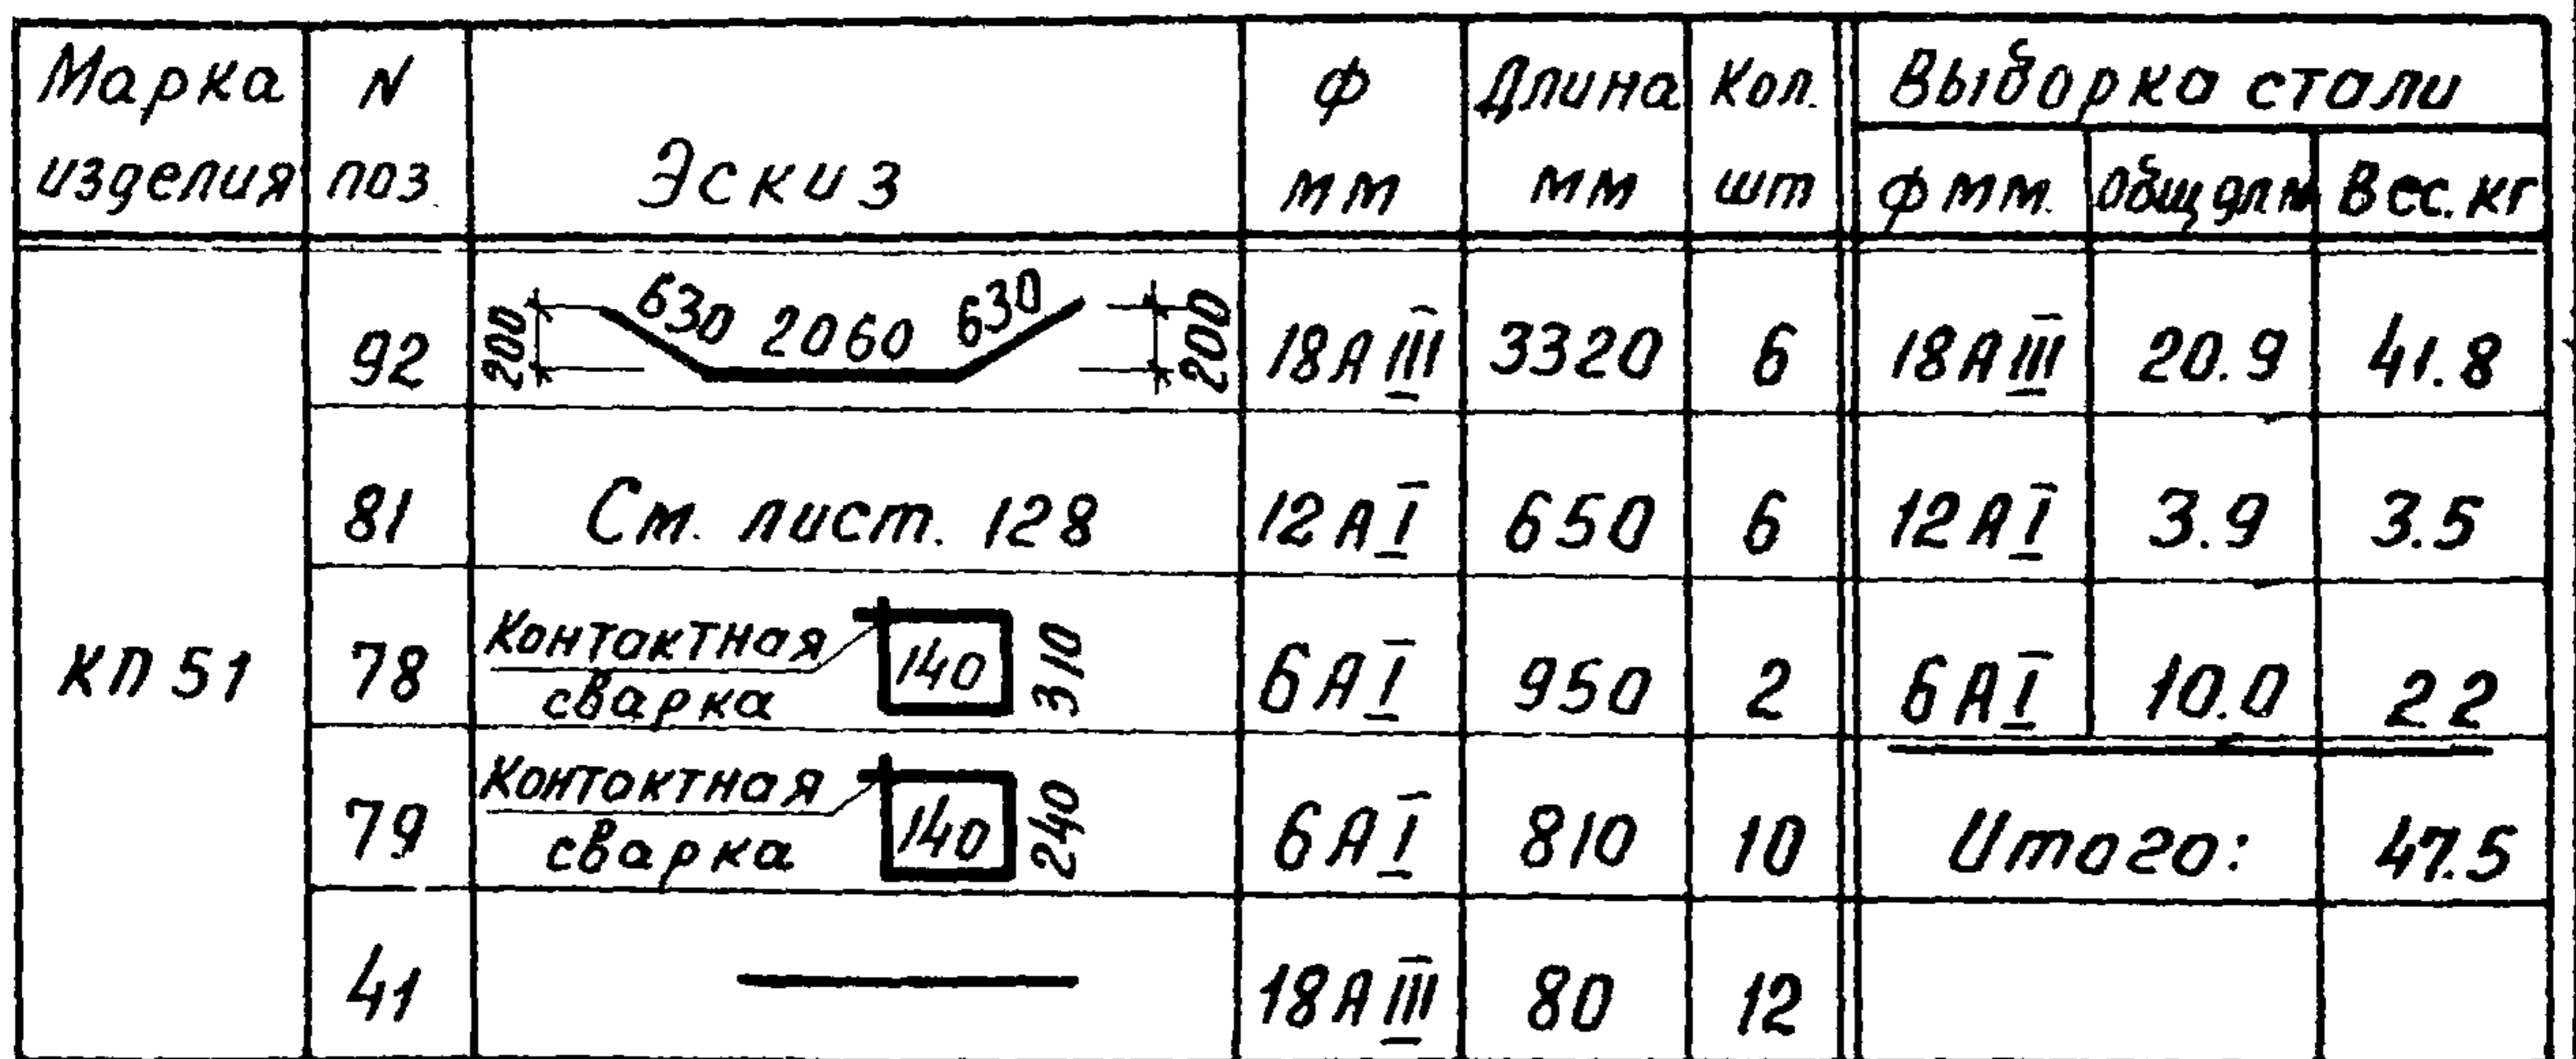 Марка изделия
N поз.
Эскиз
Ф мм
Длина мм
Кол. шт
Выборка стали
Ф мм.
Общ дл м
Вес. кг
КП 51
92
200 630 2060 630 200
18АIII 3320 6 18АIII 20.9 41.8
81 См. лист. 128 12АI 650 6 12АI 3.9 3.5
78 Контактная сварка 140 310 6АI 950 2 6АI 10.0 2.2
79 Контактная сварка 140 240 6АI 810 10 Итого: 47.5
41 18АIII 80 12